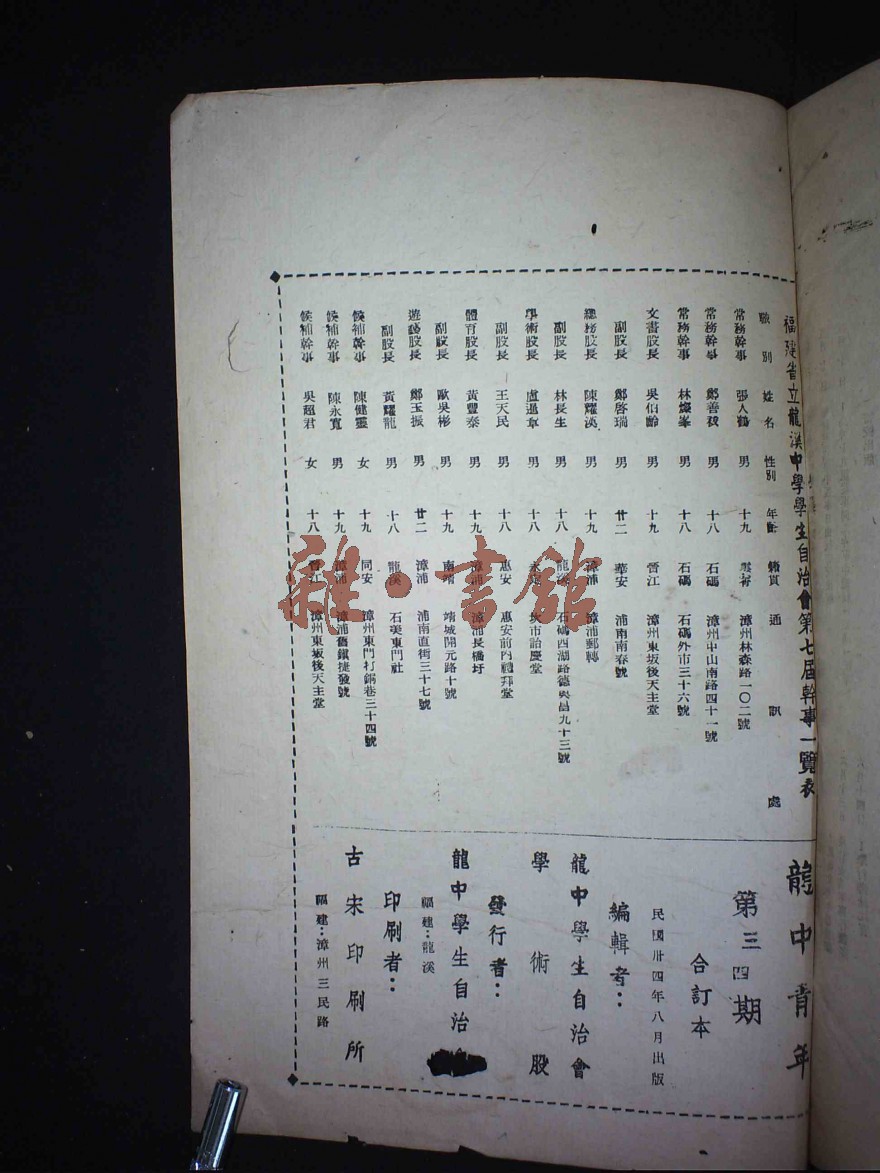 福建省立龍溪中學學生自治會第七屆幹事一覽表
職別 姓名 性別 年齡 籍貫 通訊處
常務幹事 張人鶴 男 十九 雲霄 漳州林森路一〇二號
常務幹事 鄭善 男 十八 石碼 漳州中山南路四十一號
常務幹事 林燦峯 男 十八 石碼 石碼外市三十六號
文書股長 吳伯齡 男 十九 晉江 漳州東坂後天主堂
副股長 鄭啓瑞 男 廿二 華安 浦南南春號
總務股長 陳耀溪 男 十九 漳浦 漳浦郵轉
副股長 林長生 男 十八 龍溪 石碼西湖路德吳昌九十三號
學術股長 盧過 男 十八 永定 坎市詒慶堂
副股長 王天民 男 十八 惠安 惠安前內禮拜堂
體育股長 黃豐泰 男 十九 漳浦 漳浦長橋圩
副股長 歐吳彬 男 十九 南靖 靖城開元路十號
遊藝股長 鄭玉振 男 廿二 漳浦 浦南直街三十七號
副股長 黃耀龍 男 十八 龍溪 石美東門社
候補幹事 陳健靈 女 十九 同安 漳州東門打錫巷三十四號
候補幹事 陳永寬 男 十九 漳浦 漳浦舊鎮捷發號
候補幹事 吳超君 女 十八 晉江 漳州東坂後天主堂
龍中青年
第三四期
合訂本
民國卅四年八月出版
編輯者：
龍中學生自治會
學術股
發行者：
龍中學生自治會
福建：龍溪
印刷者：
古宋印刷所
福建：漳州三民路
雜·書館